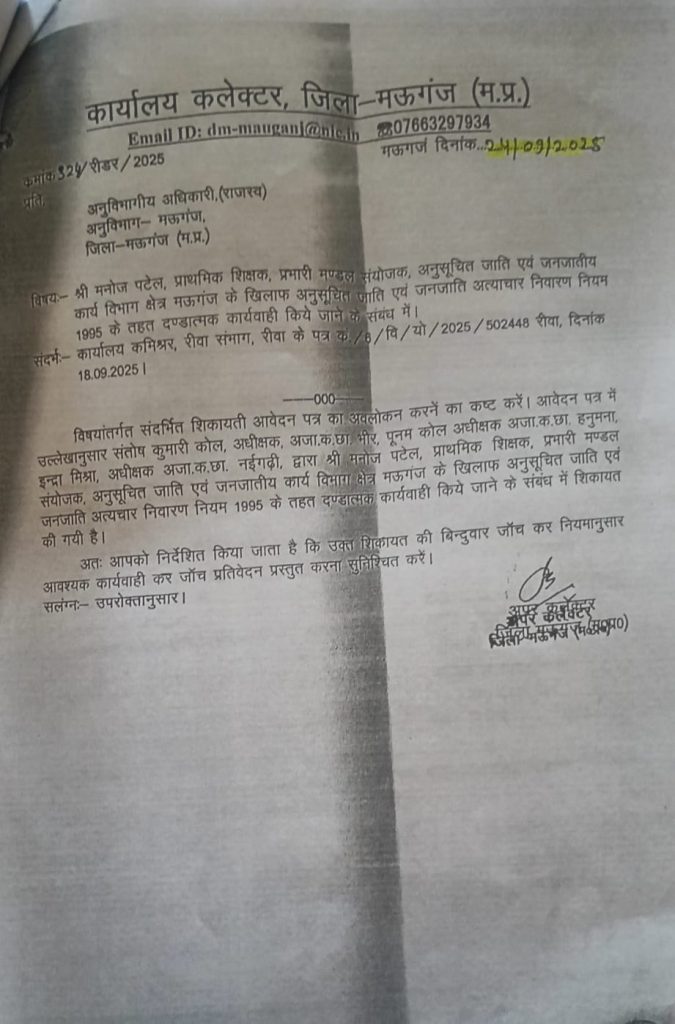 कार्यालय कलेक्टर, जिला–मऊगंज (म.प्र.)
Email ID: dm-mauganj@nic.in ☎07663297934
क्रमांक 324/रीडर/2025
मऊगजं दिनांक...24/09/2025
प्रति,
अनुविभागीय अधिकारी,(राजस्व)
अनुविभाग– मऊगंज,
जिला–मऊगंज (म.प्र.)
विषयः– श्री मनोज पटेल, प्राथमिक शिक्षक, प्रभारी मण्डल संयोजक, अनुसूचित जाति एवं जनजातीय
कार्य विभाग क्षेत्र मऊगंज के खिलाफ अनुसूचित जाति एवं जनजाति अत्याचार निवारण नियम
1995 के तहत दण्डात्मक कार्यवाही किये जाने के संबंध में।
संदर्भः– कार्यालय कमिश्नर, रीवा संभाग, रीवा के पत्र क्र./6/वि/यो/2025/502448 रीवा, दिनांक
18.09.2025।
——000——
विषयांतर्गत संदर्भित शिकायती आवेदन पत्र का अवलोकन करनें का कष्ट करें। आवेदन पत्र में
उल्लेखानुसार संतोष कुमारी कोल, अधीक्षक, अजा.क.छा. भीर, पूनम कोल अधीक्षक अजा.क.छा. हनुमना,
इन्द्रा मिश्रा, अधीक्षक अजा.क.छा. नईगढ़ी, द्वारा श्री मनोज पटेल, प्राथमिक शिक्षक, प्रभारी मण्डल
संयोजक, अनुसूचित जाति एवं जनजातीय कार्य विभाग क्षेत्र मऊगंज के खिलाफ अनुसूचित जाति एवं
जनजाति अत्यचार निवारण नियम 1995 के तहत दण्डात्मक कार्यवाही किये जाने के संबंध में शिकायत
की गयी है।
अतः आपको निर्देशित किया जाता है कि उक्त शिकायत की बिन्दुवार जॉच कर नियमानुसार
आवश्यक कार्यवाही कर जॉच प्रतिवेदन प्रस्तुत करना सुनिश्चित करें।
सलंग्नः– उपरोक्तानुसार।
अपर कलेक्टर
जिला–मऊगंज (म०प्र०)